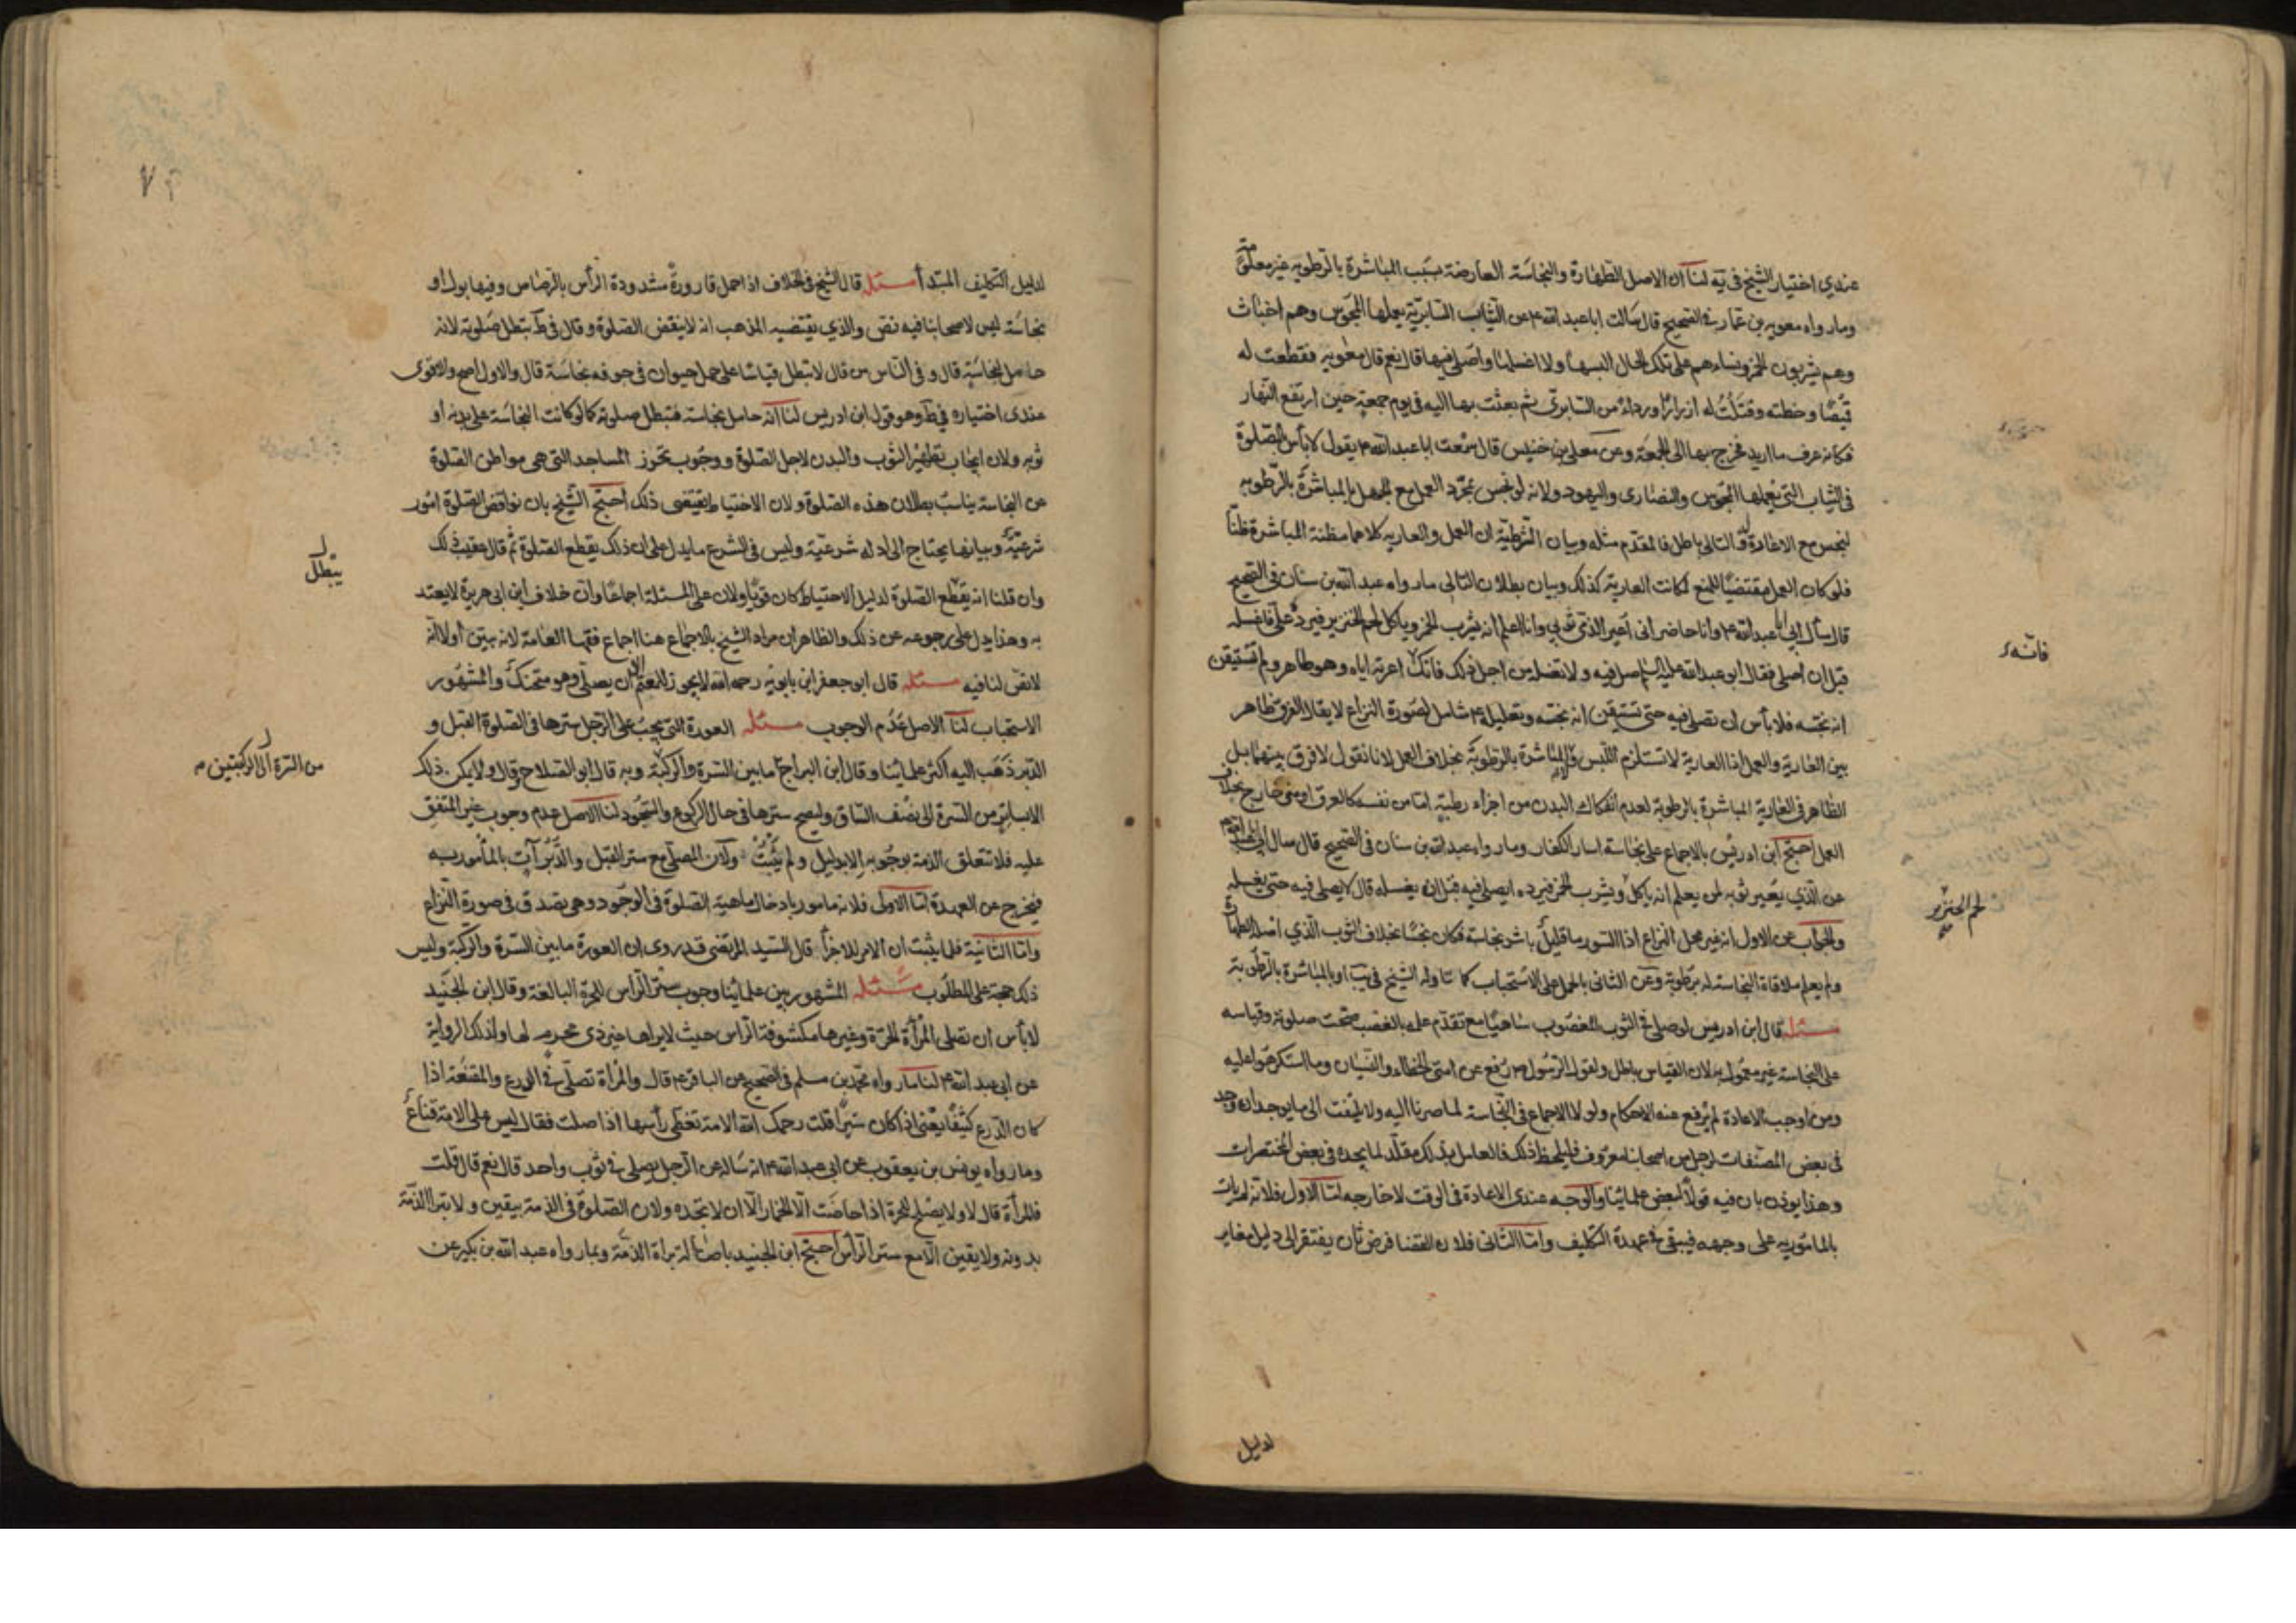 عندي اختيار الشيخ في يه لنا ان الاصل الطهارة والنجاسة العارضة بسبب المباشرة بالرطوبه غير معلومة
ومارواه معويه بن عمار في الصحيح قال سالت اباعبدالله ۴ عن الثياب السابريّة يعملها المجوس وهم اخباث
وهم يشربون الخمر ونساءهم على تلك الحال البسها ولا اغسلها واصلى فيها قال نعم قال معويه فقطعت له
قميصا وخطته وفتلت له ازرارًا ورداء من السابرىّ ثم بعثت بها اليه فى يوم جمعة حين ارتفع النهار
فكانه عرف ما اريد فخرج بها الى الجمعة وعن معلى بن خنيس قال سمعت اباعبدالله ۴ يقول لا بأس بالصلوة
فى الثياب التى يعملها المجوس والنصارى واليهود ولانه لو نجس بمجرّد العمل مع الجهل بالمباشرة بالرطوبه
لنجس مع الاعارة والتالى باطل فالمقدّم مثله وبيان الشرطية ان العمل والعاريه كلاهما مظنة المباشرة ظنّا
فلو كان العمل مقتضيًا للمنع لكانت العارية كذلك وبيان بطلان التالى مارواه عبدالله بن سنان فى الصحيح
قال سأل ابى اباعبدالله ۴ وانا حاضر انى اعير الذمّى ثوبي وانا اعلم انه يشرب الخمر وياكل لحم الخنزير فيردّ علىّ فاغسله
قبل ان اصلى فقال ابوعبدالله عليه السلم صل فيه ولا تغسله من اجل ذلك فانك اعرته اياه وهو طاهر ولم تستيقن
فانّه
انه نجّسه فلا بأس ان تصلى فيه حتى تستيقن انه نجّسه وتعليله ۴ شامل لصورة النزاع لا يقال الفرق ظاهر
بين العارية والعمل اذ العارية لا تستلزم اللبس والمباشرة بالرطوبة بخلاف العمل لانا نقول لا فرق بينهما بل
الظاهر فى العارية المباشرة بالرطوبة لعدم انفكاك البدن من اجزاء رطبة اما من نفسه كالعرق او من خارج بخلاف
العمل احتج ابن ادريس بالاجماع على نجاسة اسار الكفار ومارواه عبدالله بن سنان فى الصحيح قال سال ابى اباعبدالله ۴
عن الذي يعير ثوبه لمن يعلم انه ياكل ويشرب الخمر فيرده ايصلى فيه قبل ان يغسله قال لا يصلى فيه حتى يغسله
لحم الخنزير
والجواب عن الاول انه غير محل النزاع اذ السور ما قليل باشر نجاسة فكان نجسًا بخلاف الثوب الذي
ولم يعلم ملاقاة النجاسة له برطوبة وعن الثانى بالحمل على الاستحباب كما تاوله الشيخ فى يب او بالمباشرة بالرطوبة
مسئله قال ابن ادريس لو صلى فى الثوب المغصوب ساهيًا مع تقدّم علمه بالغصب صحّت صلوته وقياسه
على النجاسة غير معمول به لان القياس باطل ولقول الرسول ۴ رفع عن امتى الخطاء والنسيان وما استكرهوا عليه
ومن اوجب الاعادة لم يرفع عنه الاحكام ولولا الاجماع فى النجاسة لما صرنا اليه ولا يلتفت الى ما يوجد ان وجد
فى بعض المصنفات لرجل من اصحابنا معروف فليلحظ ذلك فالعامل بذلك مقلّد لما يجده فى بعض المختصرات
وهذا يوذن بان فيه قولا لبعض علمائنا والوجه عندى الاعادة فى الوقت لا خارجه لنا الاول فلانه لم يات
بالمامور به على وجهه فيبقى فى عهدة التكليف واما الثانى فلان القضا فرض ثان يفتقر الى دليل مغاير
لدليل
لدليل التكليف المبتدأ مسئله قال الشيخ فى الخلاف اذا حمل قارورة مشدودة الرأس بالرصاص وفيها بول او
نجاسة ليس لاصحابنا فيه نص والذي يقتضيه المذهب انه لا ينقض الصلوة وقال فى ط تبطل صلوته لانه
حامل لنجاسة قال وفى الناس من قال لا تبطل قياسًا على حمل حيوان فى جوفه نجاسة قال والاول اصح والاقوى
عندى اختياره فى ط وهو قول ابن ادريس لنا انه حامل نجاسة فتبطل صلوته كما لو كانت النجاسة على بدنه او
ثوبه ولان ايجاب تطهير الثوب والبدن لاجل الصلوة ووجوب تحرز المساجد التى هى مواطن الصلوة
عن النجاسة يناسب بطلان هذه الصلوة ولان الاحتياط يقتضى ذلك احتج الشيخ بان نواقض الصلوة امور
شرعية وبيانها يحتاج الى ادله شرعيّة وليس فى الشرع ما يدل على ان ذلك يقطع الصلوة ثم قال عقيب ذلك
يبطل
وان قلنا انه يقطع الصلوة لدليل الاحتياط كان قويّا ولان على المسئلة اجماعًا وان خلاف ابن ابى هريرة لا يعتد
به وهذا يدل على رجوعه عن ذلك والظاهر ان مراد الشيخ بالاجماع هنا اجماع فقها العامة لانه بيّن اولا انه
لا نصّ لنا فيه مسئله قال ابو جعفر ابن بابويه رحمه الله لا يجوز للمعتم ان يصلّى الا وهو متحنك والمشهور
الاستحباب لنا الاصل عدم الوجوب مسئله العورة التى يجب على الرجل سترها فى الصلوة القبل و
الدبر ذهب اليه اكثر علمائنا وقال ابن البراج ما بين السرة والركبة وبه قال ابو الصلاح وقال ولا يمكن ذلك
من السرة الى الركبتين
الا بساتر من السرة الى نصف الساق وليصح سترها فى حال الركوع والسجود لنا الاصل عدم وجوب غير المتفق
عليه فلا تتعلق الذمة بوجوبه الا بدليل ولم يثبت ولان المصلّى مع ستر القبل والدّبر آت بالمأمور به
فيخرج عن العهدة اما الاولى فلانه مامور بادخال ماهية الصلوة فى الوجود وهى يصدق فى صورة النزاع
واما الثانية فلما يثبت ان الامر للاجزأ قال السيد المرتضى قد روى ان العورة ما بين السرة والركبة وليس
ذلك حجة على المطلوب مسئله المشهور بين علمائنا وجوب ستر الراس للحرة البالغة وقال ابن الجنيد
لا بأس ان تصلى المرأة الحرة وغيرها مكشوفة الراس حيث لا يراها غير ذى محرم لها وكذلك الرواية
عن ابى عبدالله ۴ لنا مارواه محمد بن مسلم فى الصحيح عن الباقر ۴ قال والمرأة تصلّى فى الدرع والمقنعة اذا
كان الدرع كثيفًا يعنى اذا كان ستيرًا قلت رحمك الله الامة تغطى رأسها اذا صلت فقال ليس على الامة قناع
ومارواه يونس بن يعقوب عن ابى عبدالله ۴ انه ساله عن الرجل يصلى فى ثوب واحد قال نعم قال قلت
فالمرأة قال لا ولا يصلح للحرة اذا حاضت الا الخمار الا ان لا تجده ولان الصلوة فى الذمة بيقين ولا تبرا الذمّة
بدونه ولا يقين الا مع ستر الرأس احتج ابن الجنيد باصالة براة الذمّة وبمارواه عبدالله بن بكير عن